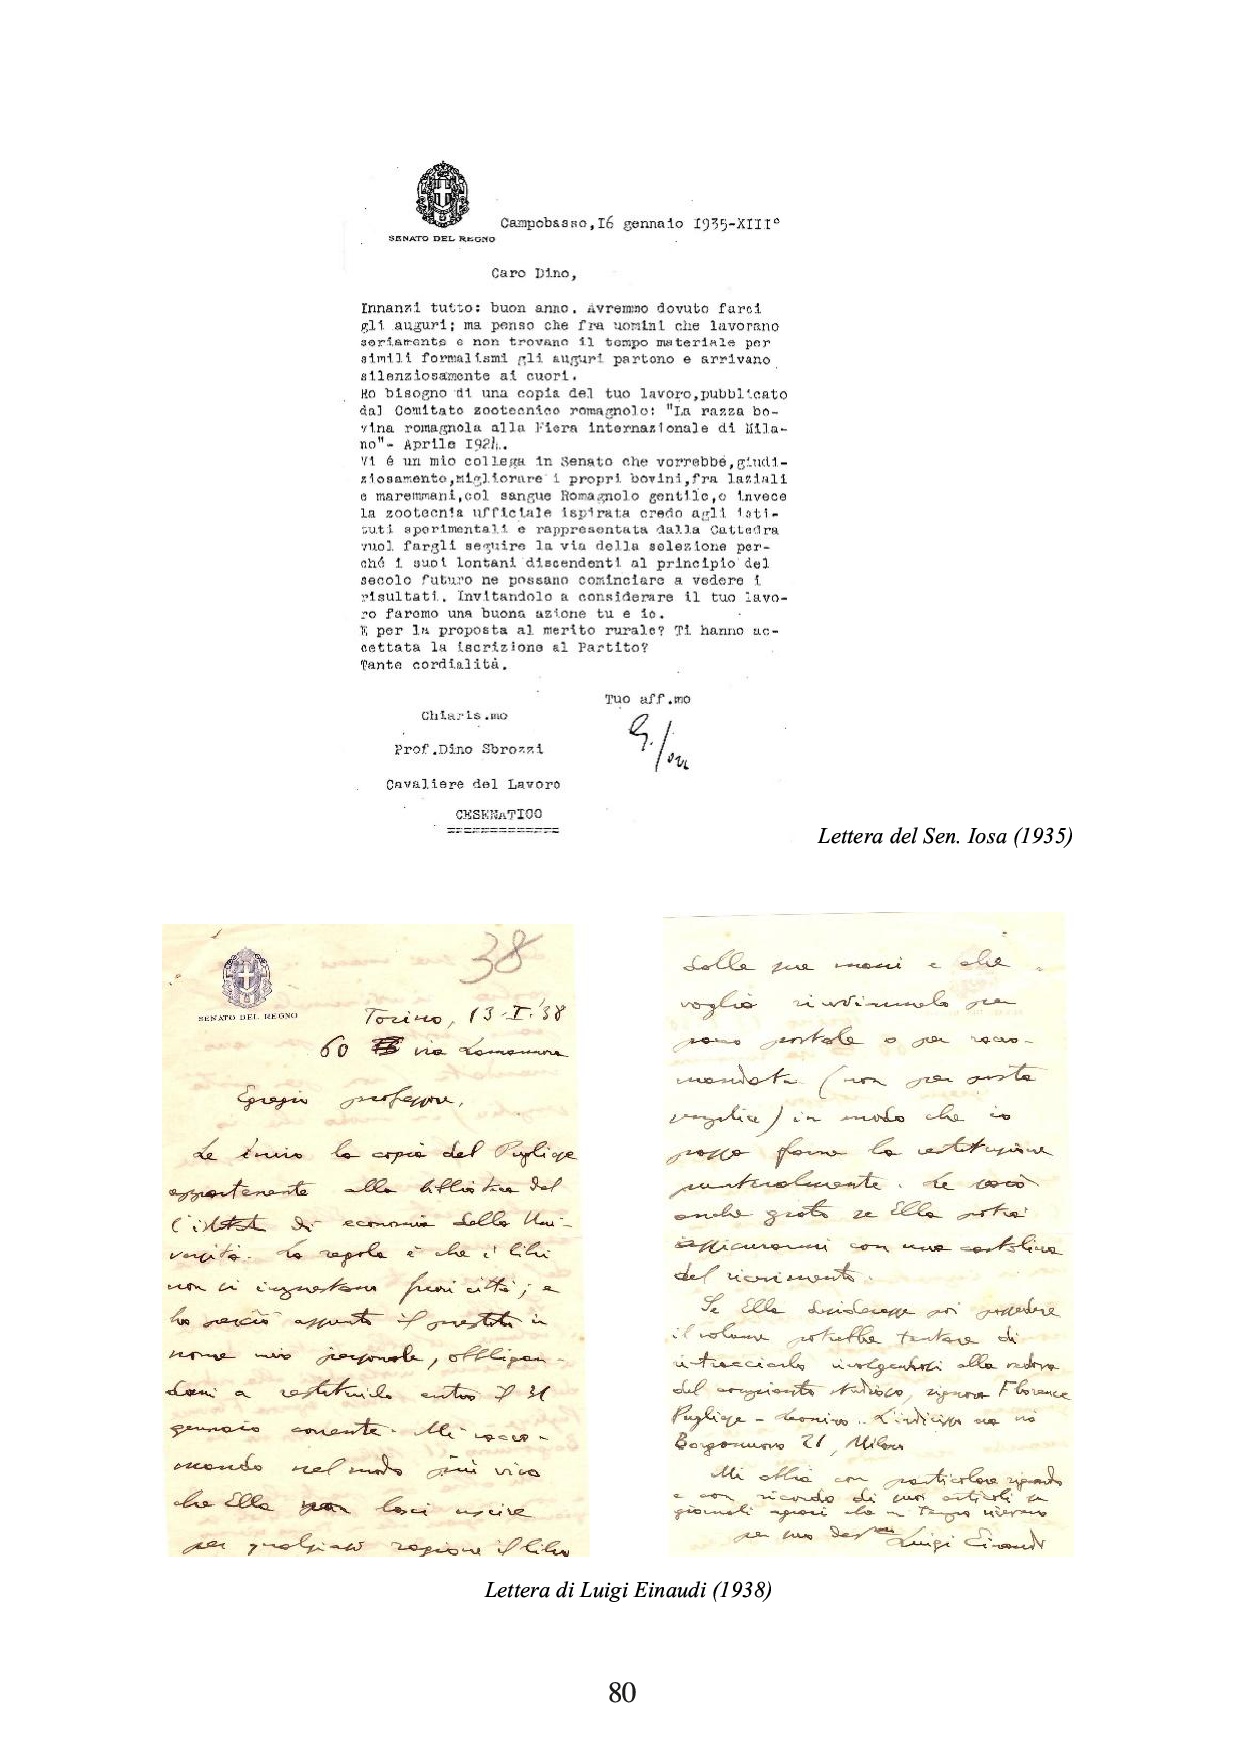 SENATO DEL REGNO
Campobasso,16 gennaio 1935-XIII°
Caro Dino,
Innanzi tutto: buon anno. Avremmo dovuto farci
gli auguri; ma penso che fra uomini che lavorano
seriamente e non trovano il tempo materiale per
simili formalismi gli auguri partono e arrivano
silenziosamente ai cuori.
Ho bisogno di una copia del tuo lavoro,pubblicato
dal Comitato zootecnico romagnolo: "La razza bo-
vina romagnola alla Fiera internazionale di Mila-
no"- Aprile 1924.
Vi é un mio collega in Senato che vorrebbe,giudi-
ziosamente,migliorare i propri bovini,fra laziali
e maremmani,col sangue Romagnolo gentile,e invece
la zootecnia ufficiale ispirata credo agli isti-
tuti sperimentali e rappresentata dalla Cattedra
vuol fargli seguire la via della selezione per-
ché i suoi lontani discendenti al principio del
secolo futuro ne possano cominciare a vedere i
risultati. Invitandolo a considerare il tuo lavo-
ro faremo una buona azione tu e io.
E per la proposta al merito rurale? Ti hanno ac-
cettata la iscrizione al Partito?
Tante cordialità.
Tuo aff.mo
Chiaris.mo
Prof.Dino Sbrozzi
Cavaliere del Lavoro
CESENATICO
Lettera del Sen. Iosa (1935)
38
SENATO DEL REGNO
Torino, 13-I-'38
60 via
Egregio professore,
Le invio la copia del Pugliese
appartenente alla biblioteca del
di economia della Uni-
versità. La regola è che i libri
non si fuori città; e
ho perciò assunto il prestito in
nome mio personale, obbligan-
domi a restituirlo entro il 31
gennaio corrente. Mi racco-
mando nel modo più vivo
che Ella non lasci uscire
per qualsiasi ragione il libro
dalle sue mani e che
voglia rinviarmelo per
pacco postale o per racco-
mandata (non per posta
semplice) in modo che io
possa farne la restituzione
puntualmente. Le sarò
anche grato se Ella potrà
assicurarmi con una cartolina
del ricevimento.
Se Ella desiderasse poi possedere
il volume potrebbe tentare di
rintracciarlo rivolgendosi alla vedova
del compianto signora Florence
Pugliese - L'indirizzo è via
Borgonuovo 21, Milano
Mi abbia con particolare riguardo
e con ricordo di suoi articoli su
giornali agrari che un tempo
per suo Luigi Einaudi
Lettera di Luigi Einaudi (1938)
80